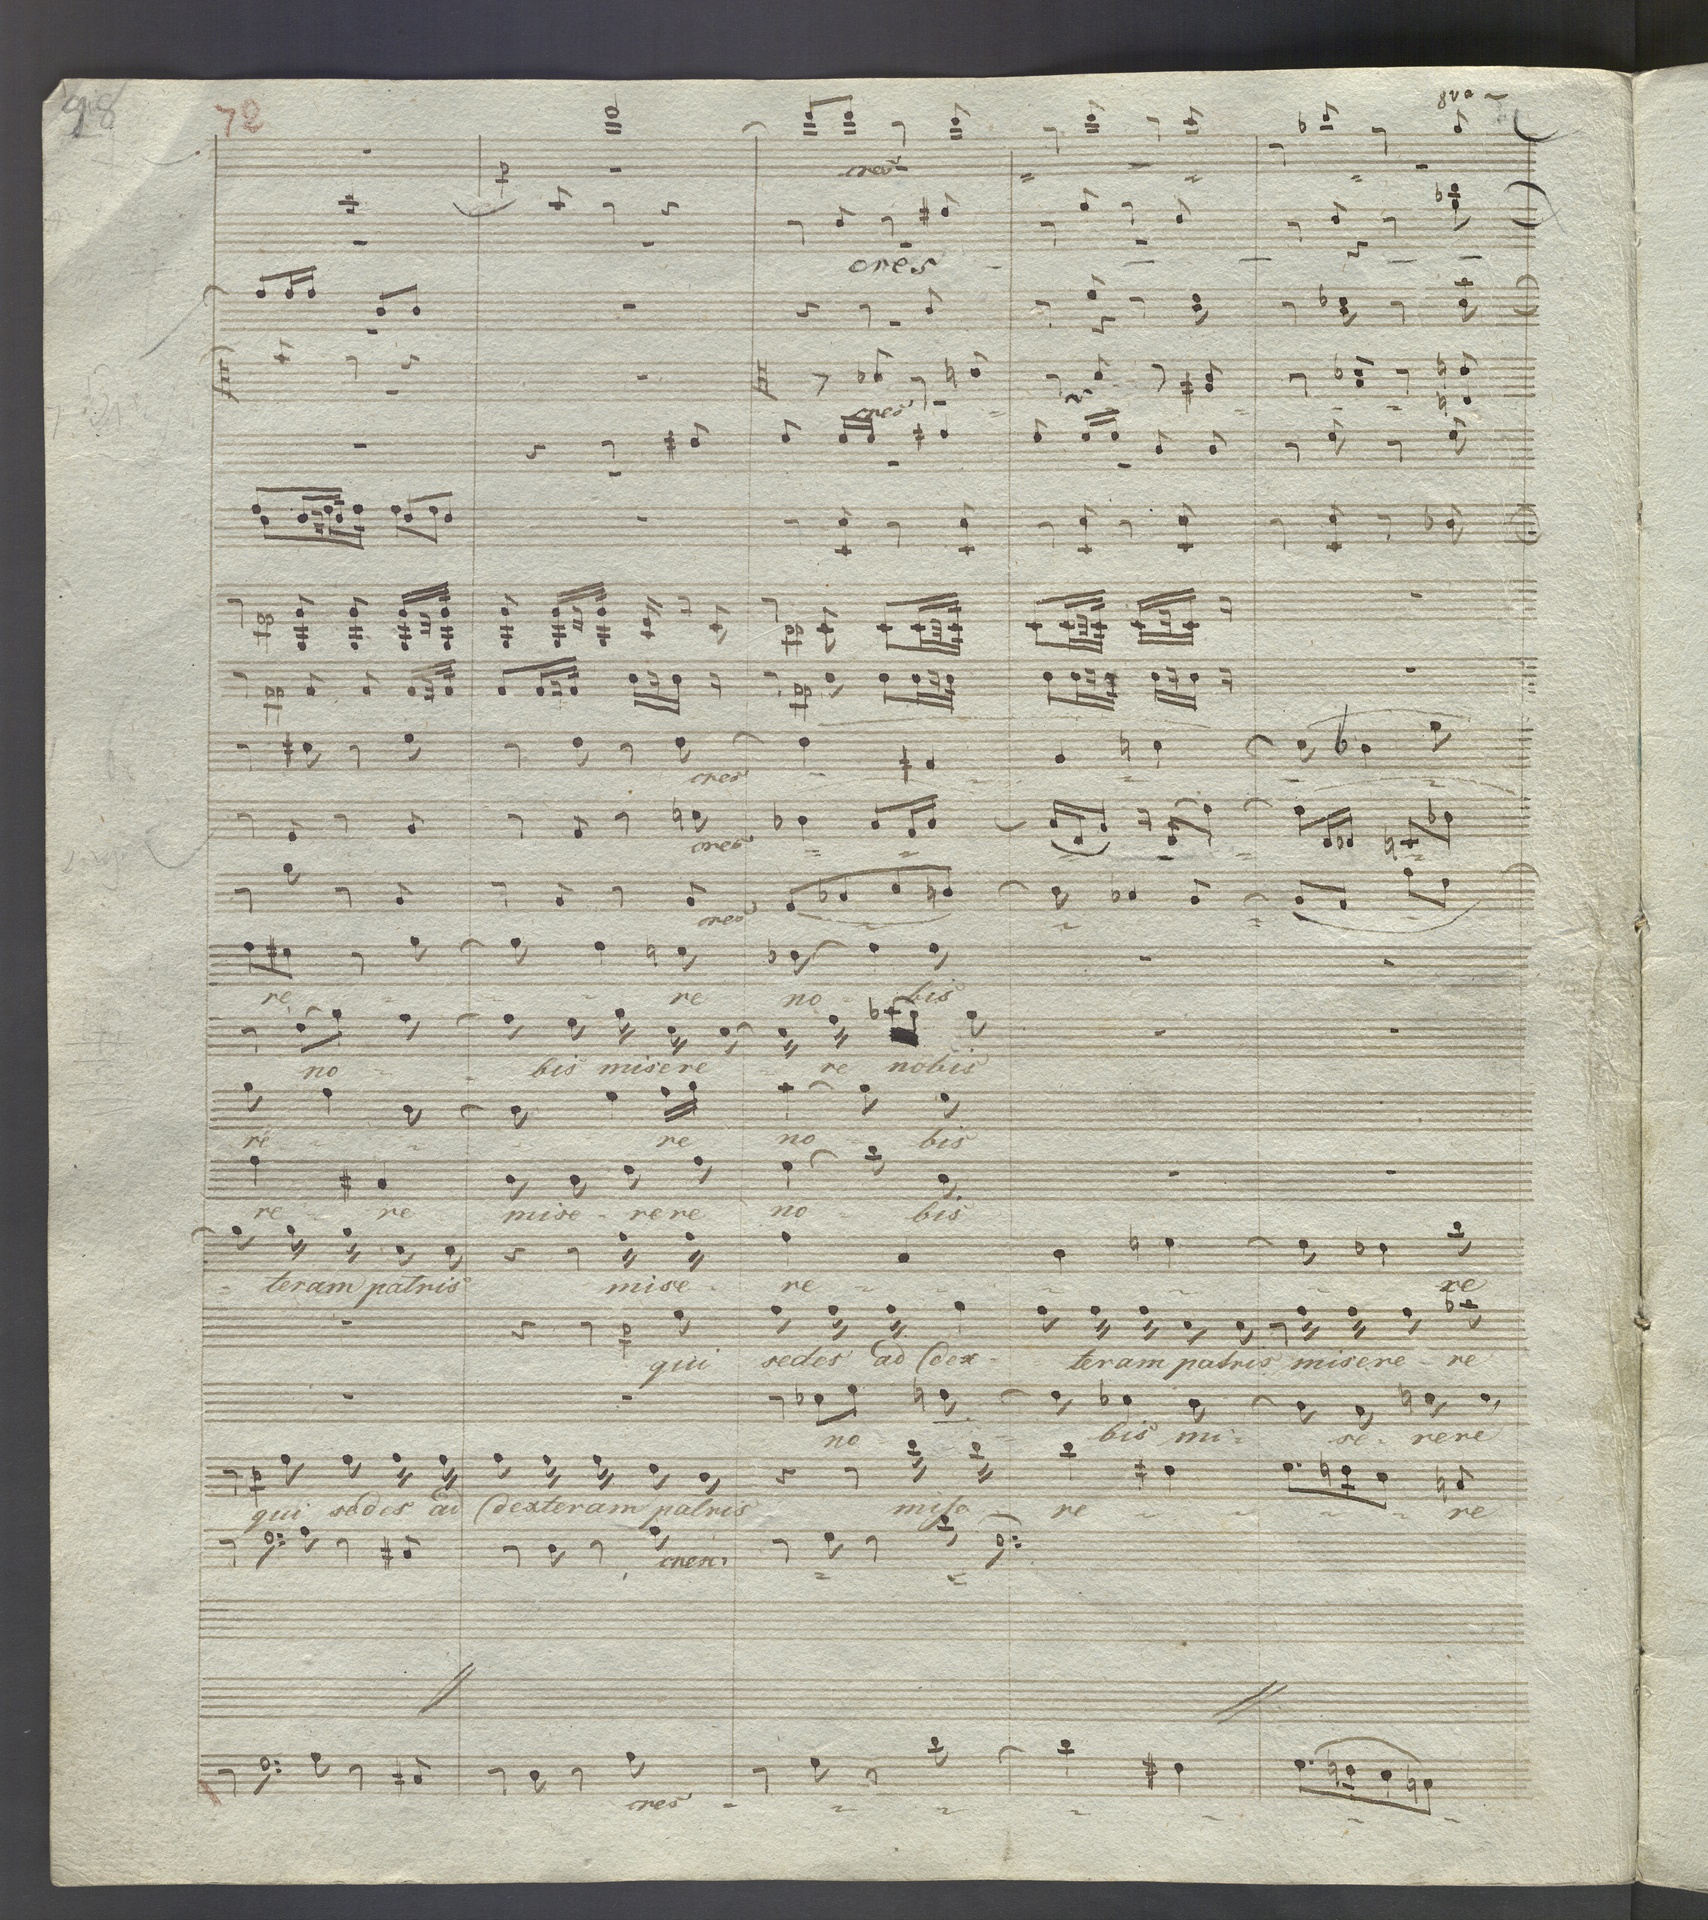 98
72
8va
cres
cres
cres
cres
cres
cres
re re no bis
no bis misere re nobis
re re no bis
re re mise - rere no bis
- teram patris mise - re re
qui sedes ad dex - teram patris misere - re
no bis mi - se - rere
qui sedes ad dexteram patris mise re re
cres:
cres